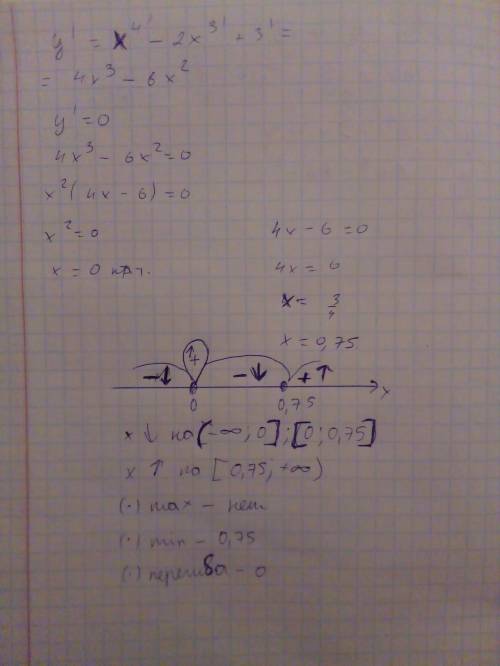 y' = x⁴' - 2x³' + 3' =
= 4x³ - 6x²
y' = 0
4x³ - 6x² = 0
x²(4x - 6) = 0
x² = 0
4x - 6 = 0
x = 0 крат.
4x = 6
x = 3/4
x = 0,75
+
- ↓ - ↓ + ↑
0 0,75 x
x ↓ на (-∞; 0]; [0; 0,75]
x ↑ на [0,75; +∞)
(·) max - нет
(·) min - 0,75
(·) перегиба - 0